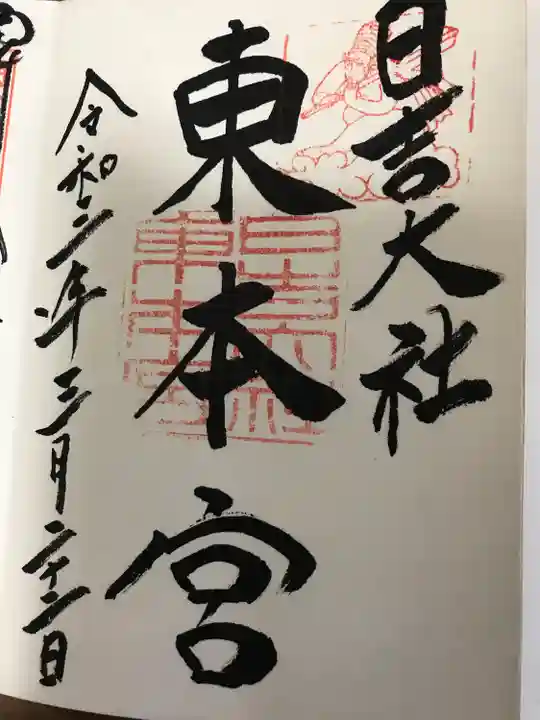 日吉大社
東本宮
令和二年三月二十二日